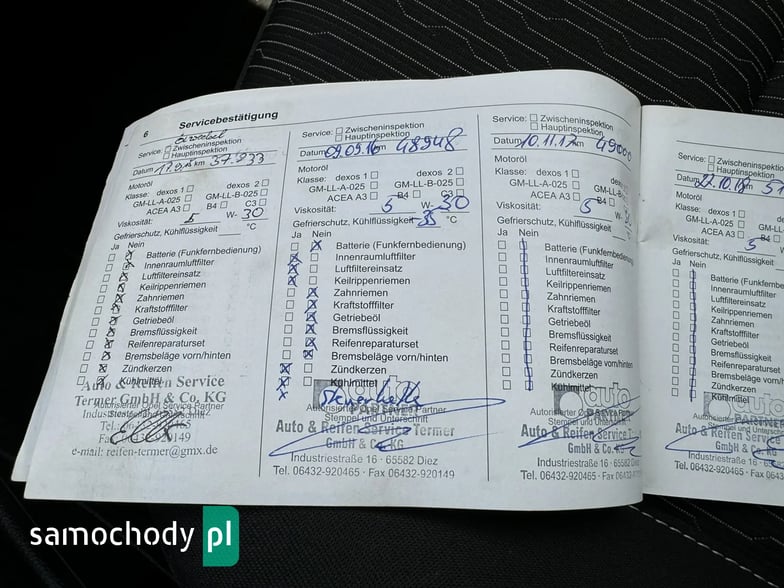 6 Servicebestätigung
Ölwechsel
Service: Zwischeninspektion
Hauptinspektion
Datum km 37.233
Motoröl
Klasse: dexos 1 dexos 2
GM-LL-A-025 GM-LL-B-025
ACEA A3 B4 C3
Viskosität: 5 W- 30
Gefrierschutz, Kühlflüssigkeit °C
Ja Nein
Batterie (Funkfernbedienung)
Innenraumluftfilter
Luftfiltereinsatz
Keilrippenriemen
Zahnriemen
Kraftstofffilter
Getriebeöl
Bremsflüssigkeit
Reifenreparaturset
Bremsbeläge vorn/hinten
Zündkerzen
Kühlmittel
Auto & Reifen Service
Termer GmbH & Co. KG
Autorisierter Opel Service Partner
Stempel und Unterschrift
e-mail: reifen-termer@gmx.de
Service: Zwischeninspektion
Hauptinspektion
Datum 09.09.16 48948
Motoröl
Klasse: dexos 1 dexos 2
GM-LL-A-025 GM-LL-B-025
ACEA A3 B4 C3
Viskosität: 5 W- 30
Gefrierschutz, Kühlflüssigkeit -35 °C
Ja Nein
Batterie (Funkfernbedienung)
Innenraumluftfilter
Luftfiltereinsatz
Keilrippenriemen
Zahnriemen
Kraftstofffilter
Getriebeöl
Bremsflüssigkeit
Reifenreparaturset
Bremsbeläge vorn/hinten
Zündkerzen
Kühlmittel
Steuerkette
auto
Autorisierter Opel Service Partner
Stempel und Unterschrift
Auto & Reifen Service Termer
GmbH & Co. KG
Industriestraße 16 · 65582 Diez
Tel. 06432-920465 · Fax 06432-920149
Service: Zwischeninspektion
Hauptinspektion
Datum 10.11.17 km
Motoröl
Klasse: dexos 1
GM-LL-A-025 GM-LL-
ACEA A3 B4
Viskosität: 5 W-
Gefrierschutz, Kühlflüssigkeit
Ja Nein
Batterie (Funkfernbedienung)
Innenraumluftfilter
Luftfiltereinsatz
Keilrippenriemen
Zahnriemen
Kraftstofffilter
Getriebeöl
Bremsflüssigkeit
Reifenreparaturset
Bremsbeläge vorn/hinten
Zündkerzen
Kühlmittel
auto
Autorisierter Opel Service
Stempel und Unterschrift
Auto & Reifen Service
GmbH & Co.
Industriestraße 16 · 65582
Tel. 06432-920465 · Fax 06432-
Service: Zwischeninspektion
Hauptinspektion
Datum
Motoröl
Klasse: dexos 1
GM-LL-A-025
ACEA A3 B4
Viskosität: 5
Gefrierschutz, Kühlflüssigkeit
Ja Nein
Batterie
Innenraumluftfilter
Luftfiltereinsatz
Keilrippenriemen
Zahnriemen
Kraftstofffilter
Getriebeöl
Bremsflüssigkeit
Reifenreparaturset
Bremsbeläge
Zündkerzen
Kühlmittel
auto
PARTNER
Autorisierter Opel
Stempel und
Auto & Reifen
GmbH
Industriestraße 16
Tel. 06432-920465
samochody pl